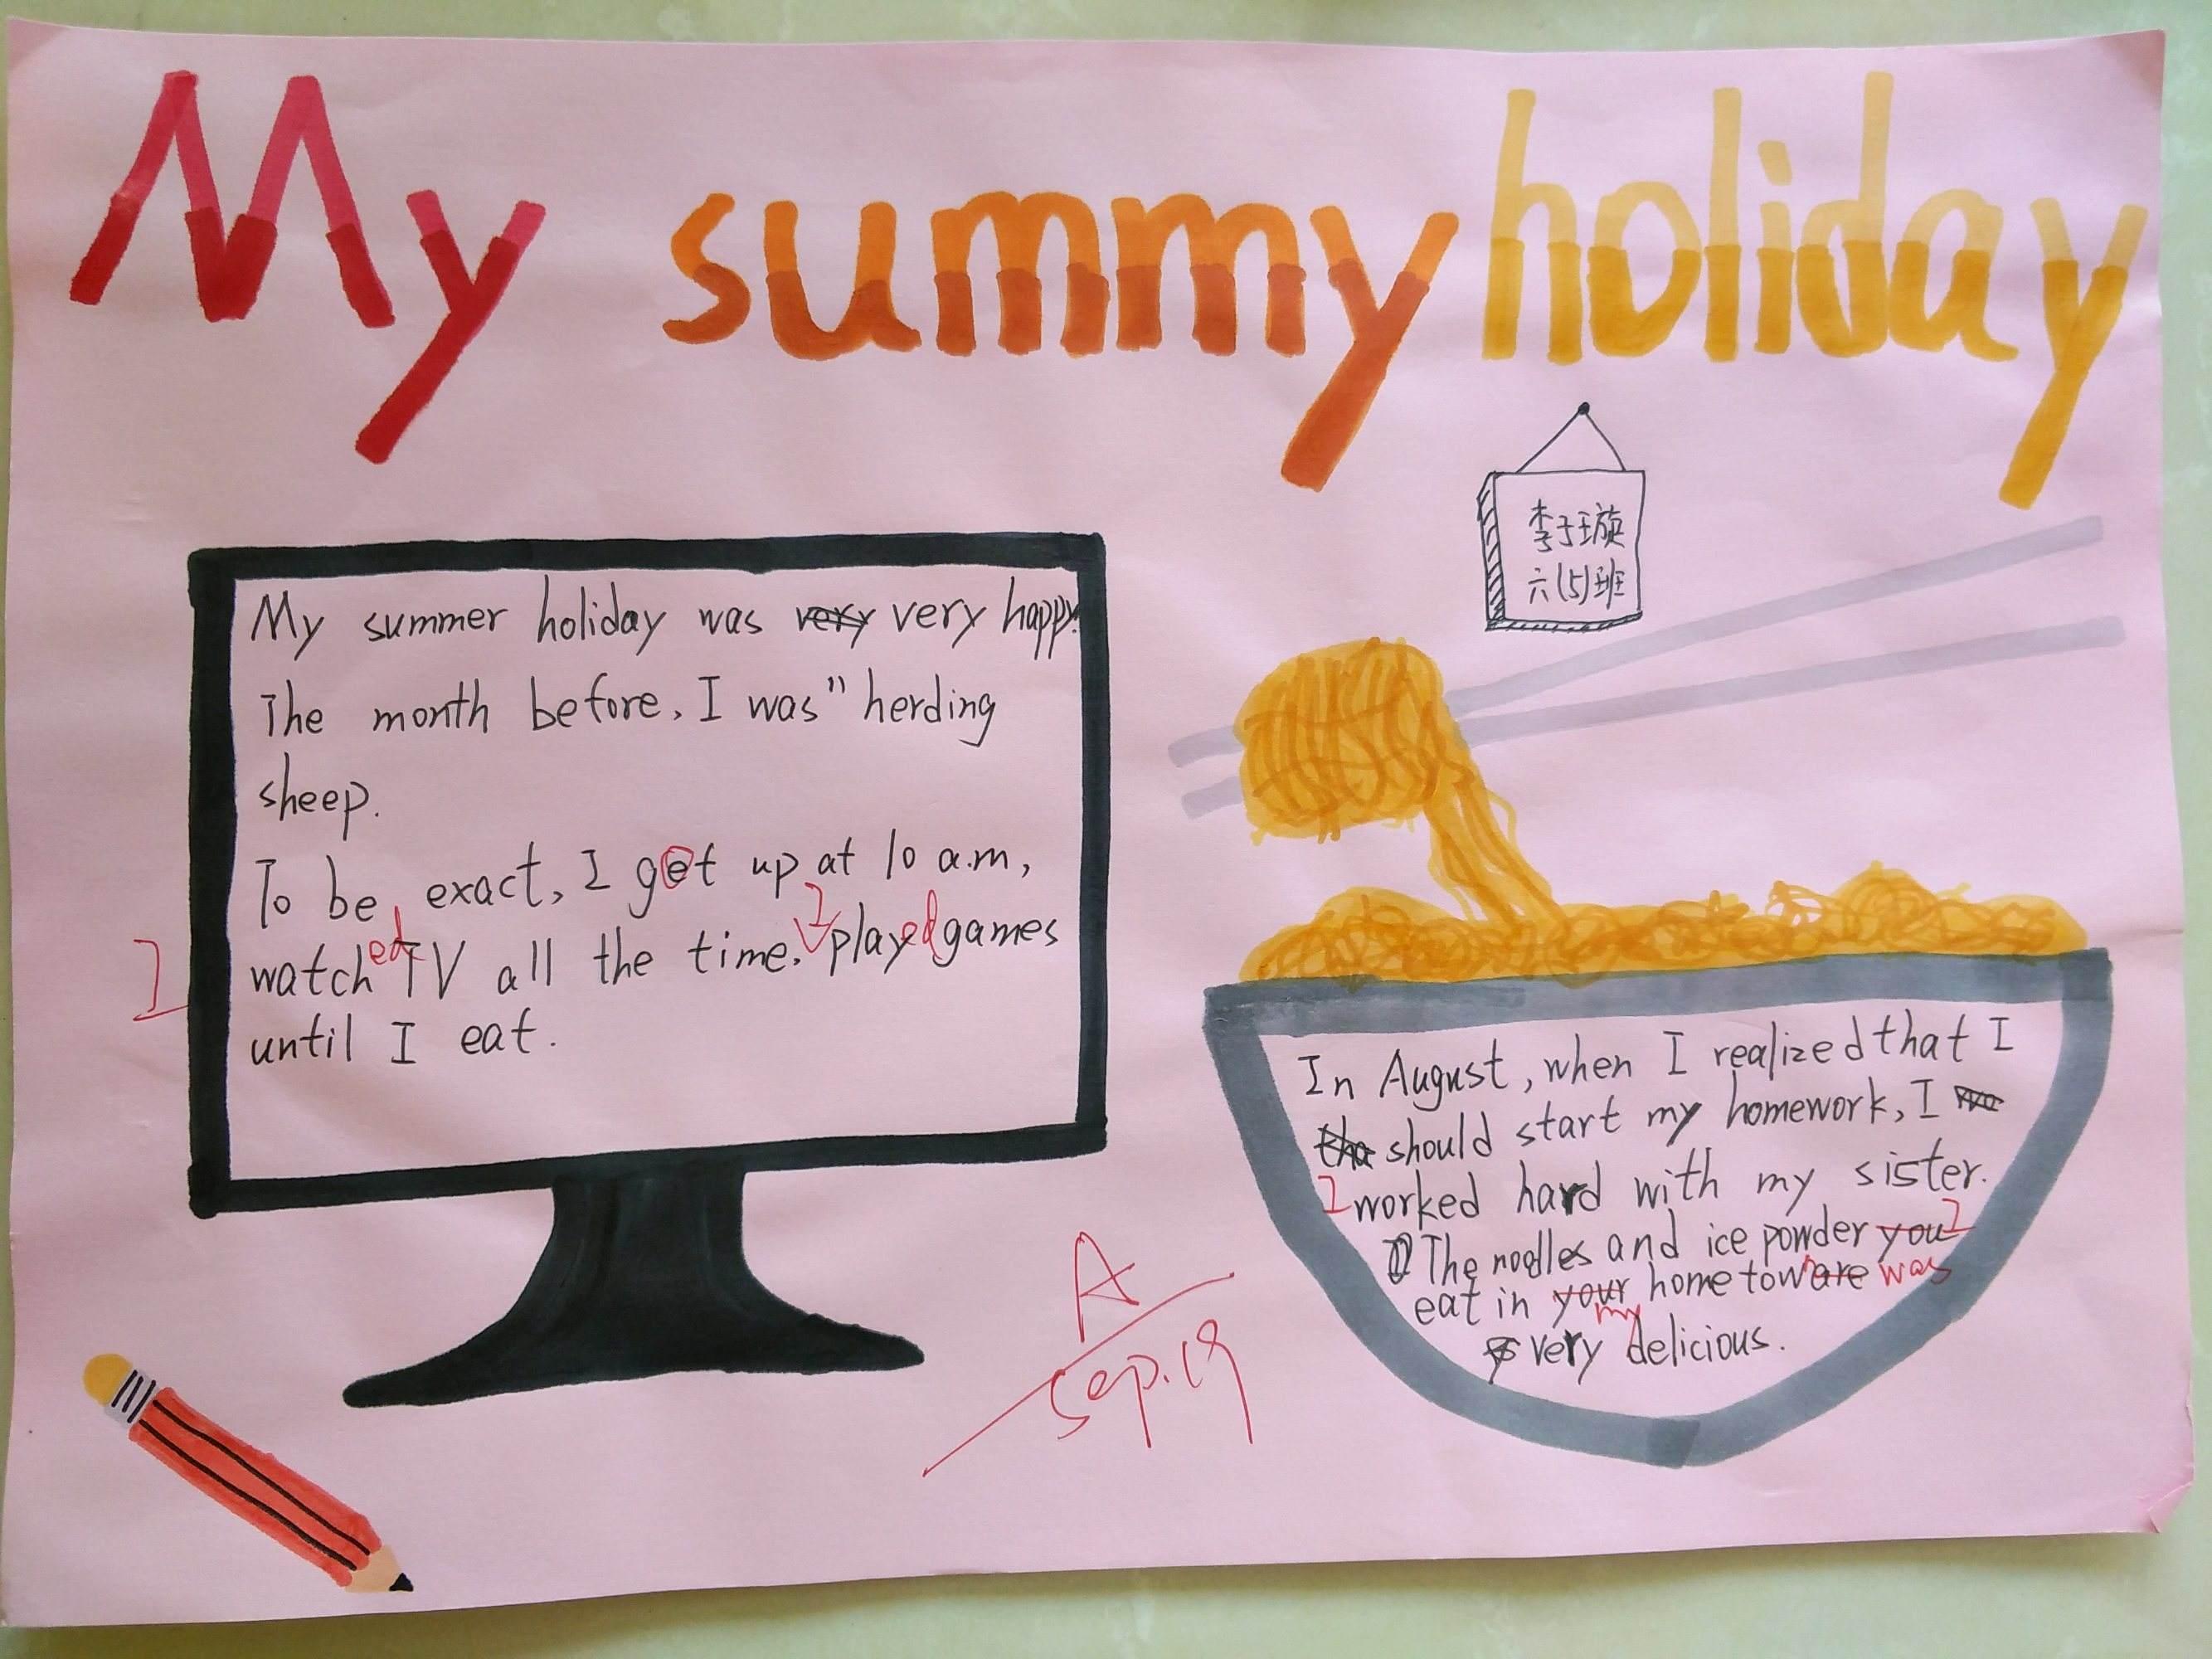 My summy holiday
李子璇
六(5)班
My summer holiday was very very happy.
The month before, I was" herding
sheep.
To be exact, I get up at 10 a.m,
I watched TV all the time. I played games
until I eat.
In August, when I realized that I
should start my homework, I
I worked hard with my sister.
The noodles and ice powder you I
eat in your my hometown are was
very delicious.
A
Sep.19